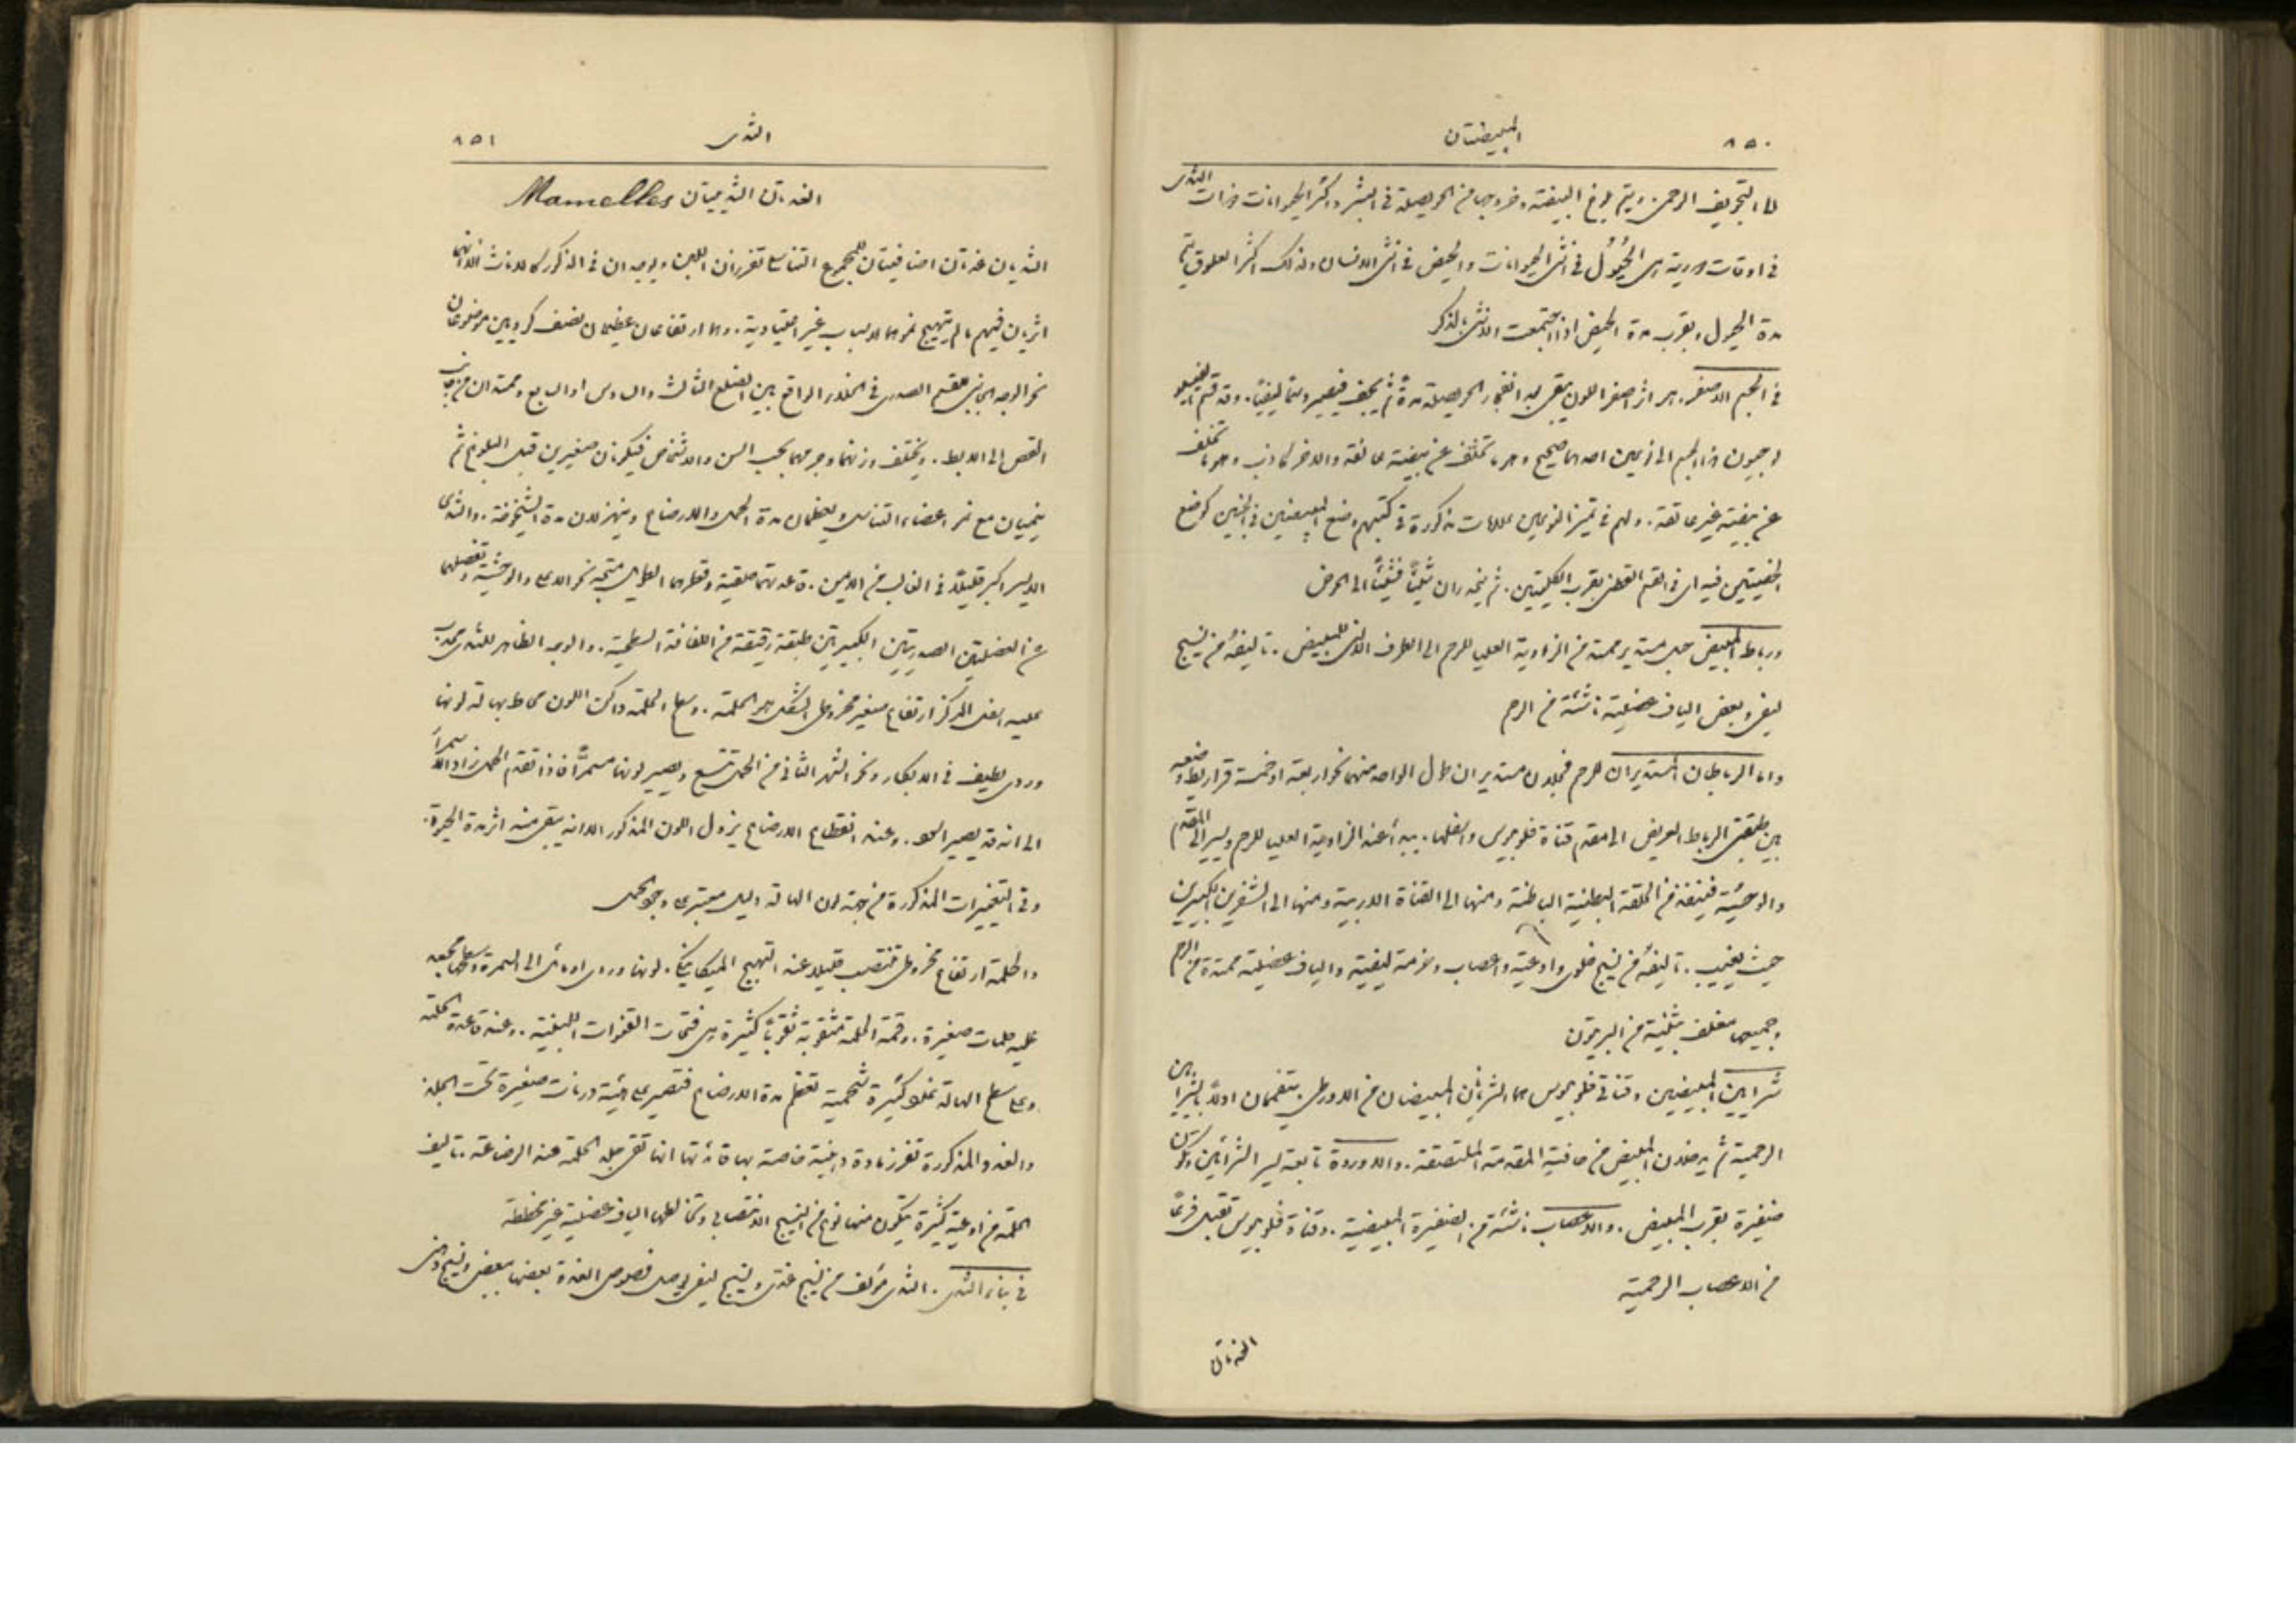 ٨٥٠
المبيضتان
لها التجويف الرحمي ويتم بلوغ البيضة وخروجها من الحويصلة في البشر واكثر الحيوانات ذوات الثدي
في اوقات دورية هي الحُيُول في انثى الحيوانات والحيض في انثى الانسان ولذلك اكثر العلوق يتم
مدة الحيول وبقرب مدة الحيض اذا اجتمعت الانثى بالذكر
في الجسم الاصفر. هو اثر اصفر اللون يبقى بعد انفجار الحويصلة مدةً ثم يجف فيصير ملتحماً ليفياً. وقد قسم
هذا الجسم الى نوعين احدهما صحيح وهو ما تخلف عن بيضة عالقة والاخر كاذب وهو ما تخلف
عن بيضة غير عالقة. ولهم في تمييز النوعين علامات مذكورة في كتبهم وضع المبيضين في الجنين كوضع
الخصيتين فيه اي في القسم القطني بقرب الكليتين. ثم ينحدران شيئاً فشيئاً الى الحوض
ورباط المبيض حبل مستدير ممتد من الزاوية العليا للرحم الى الطرف الانسي للمبيض. تأليفه من نسيج
ليفي وبعض الياف عضلية ناشئة من الرحم
واما الرباطان المستديران للرحم فحبلان مستديران طول الواحد منهما نحو اربعة او خمسة قراريط وضعه
بين طبقتي الرباط العريض الى مقدم قناة فلوبيوس واسفلها. يبدأ عند الزاوية العليا للرحم ويسير الى المقدم
والوحشية فينفذ من الحلقة البطنية الباطنة ومنها الى القناة الاربية ومنها الى الشفرين الكبيرين
حيث يغيب. تأليفه من نسيج خلوي واوعية واعصاب وحزمة ليفية والياف عضلية ممتدة من الرحم
وجميعها مغلف بثنية من البريتون
شرايين المبيضين وقناتي فلوبيوس هما الشريانان المبيضان من الاورطي يتفممان اولاً بالشرايين
الرحمية ثم يدخلان المبيض من حافته المقدمة الملتصقة. والاوردة تابعة لسير الشرايين وتكون
ضفيرة بقرب المبيض. والاعصاب ناشئة من الضفيرة المبيضية. وقناة فلوبيوس تقبل فرعاً
من الاعصاب الرحمية
الغدتان
الثدي
٨٥١
الغدتان الثدييتان Mamelles
الثديان غدتان اضافيتان للمجموع التناسلي تفرزان اللبن ويوجدان في الذكور كالاناث الا انهما
اثريان فيهم ما لم يتهيج نموهما لاسباب غير اعتيادية. وهما ارتفاعان عظيمان نصف كرويين موضوعان
نحو الوجه الجانبي للقسم الصدري في الخلاء الواقع بين الضلع الثالث والسادس او السابع وممتدان من جانب
القص الى الابط. ويختلف وزنهما وجرمهما بحسب السن والاشخاص فيكونان صغيرين قبل البلوغ ثم
ينميان مع نمو اعضاء التناسل ويعظمان مدة الحمل والارضاع وينهزلان مدة الشيخوخة. والثدي
الايسر اكبر قليلاً في الغالب من الايمن. قاعدتهما حلقية وقطرهما الطويل متجه نحو الاعلى والوحشية وتفصلهما
عن العضلتين الصدريتين الكبيرتين طبقة رقيقة من اللفافة السطحية. والوجه الظاهر للثدي محدب
عليه اسفل المركز ارتفاع صغير مخروطي الشكل هو الحلمة. وسطح الحلمة داكن اللون محاط بهالة لونها
وردي لطيف في الابكار ونحو الشهر الثاني من الحمل تتسع ويصير لونها مسمراً فاذا تقدم الحمل زاد اللون سمراً
الى انه قد يصير اسود. وعند انقطاع الارضاع يزول اللون المذكور الا انه يبقى منه اثر مدة الحيوة.
وفي التغييرات المذكورة من جهة لون الهالة دليل معتبر على وجود الحمل
والحلمة ارتفاع مخروطي منتصب قليلا عند التهيج الميكانيكي. لونها وردي او مائل الى السمرة وسطحها مجعد
عليه حلمات صغيرة. وقمة الحلمة مثقوبة ثقوباً كثيرة هي فتحات القنوات اللبنية. وعند قاعدة الحلمة
وعلى سطح الهالة غدد كثيرة شحمية تعظم مدة الارضاع فتصير على هيئة درنات صغيرة تحت الجلد
والغدد المذكورة تفرز مادة دهنية خاصة بها فائدتها انها تقي جلد الحلمة عند الرضاعة. تأليف
الحلمة من اوعية كثيرة يتكون منها نوع من النسيج الانتصابي وتخالطها الياف عضلية غير مخططة
في بناء الثدي. الثدي مؤلف من نسيج غددي ونسيج ليفي يوصل فصوص الغدة بعضها ببعض ونسيج دهني